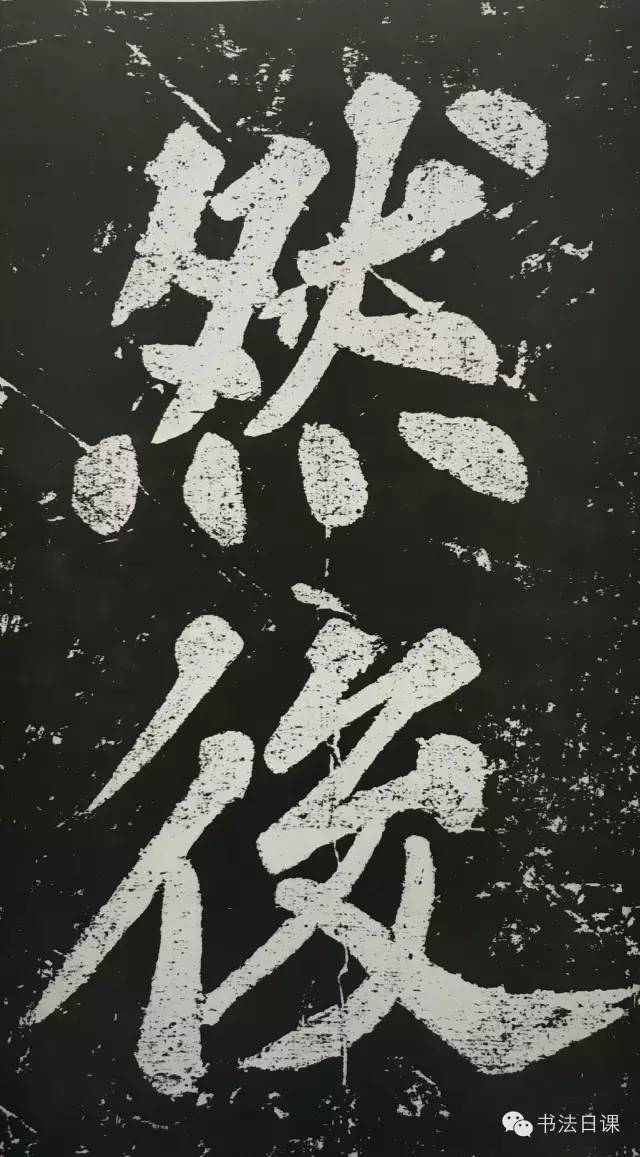 然
後
书法日课